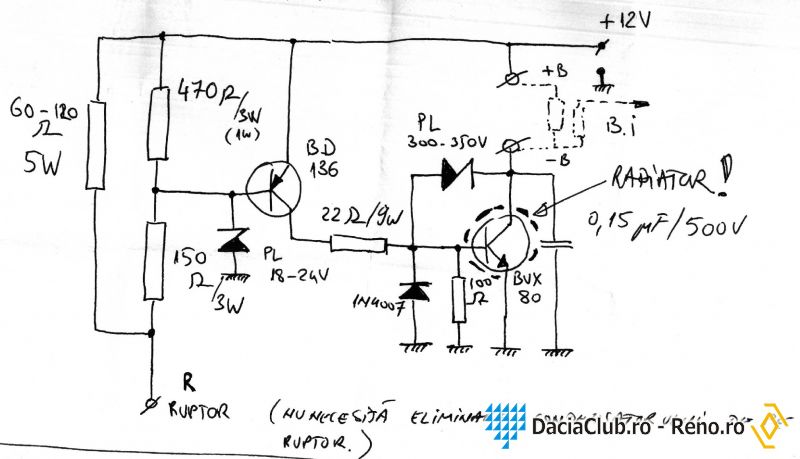 +12V
60-120
Ω
5W
470Ω/3W
(1W)
B.D
136
PL
300-350V
+B
-B
B.i
RADiATOR!
0,15 µF/500V
22Ω/9W
150
Ω/3W
PL
18-24V
1N4007
100
Ω
BUX
80
R
RUPTOR
(NU NECESITĂ ELIMINA
RUPTOR.)
DaciaClub.ro - Reno.ro